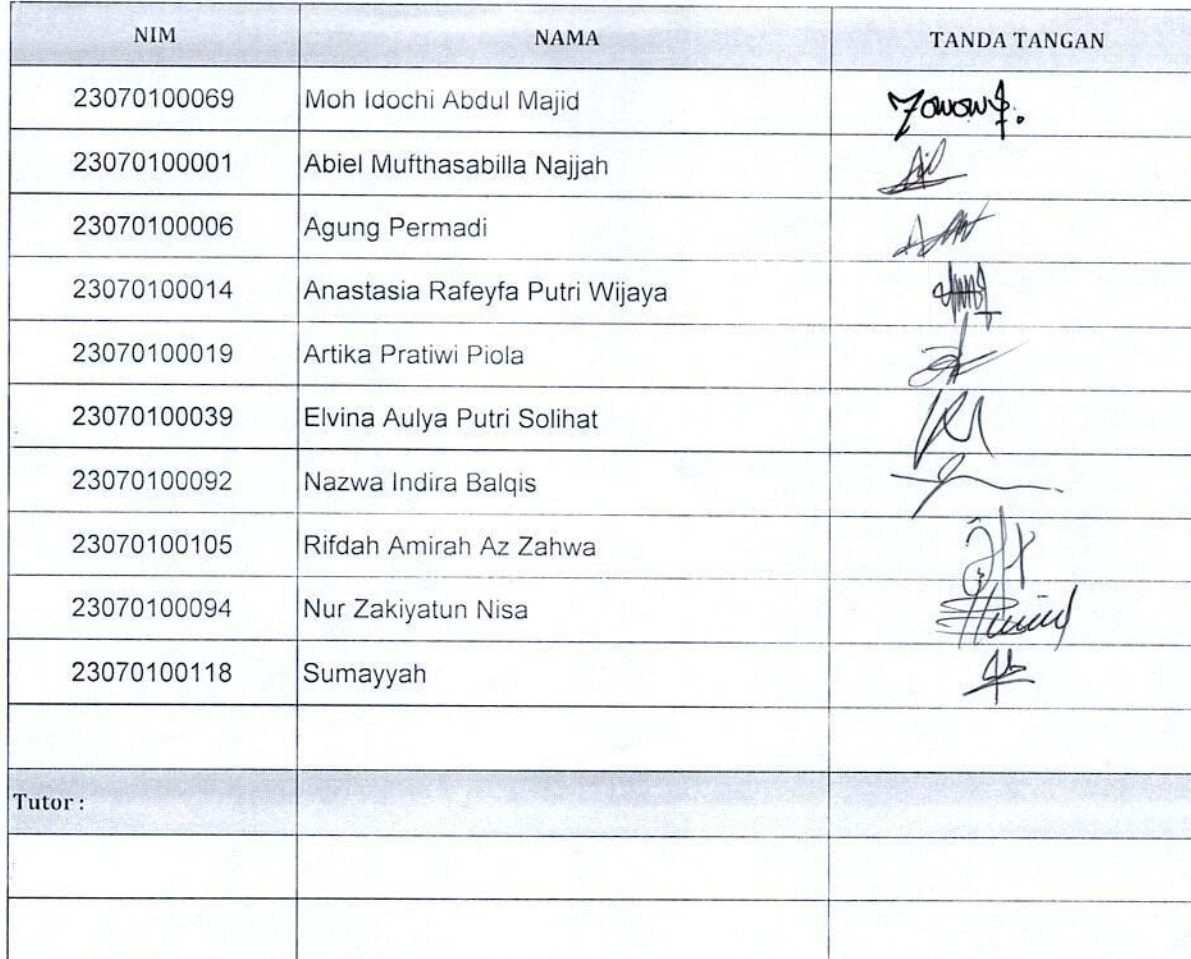 NIM NAMA TANDA TANGAN
23070100069 Moh Idochi Abdul Majid
23070100001 Abiel Mufthasabilla Najjah
23070100006 Agung Permadi
23070100014 Anastasia Rafeyfa Putri Wijaya
23070100019 Artika Pratiwi Piola
23070100039 Elvina Aulya Putri Solihat
23070100092 Nazwa Indira Balqis
23070100105 Rifdah Amirah Az Zahwa
23070100094 Nur Zakiyatun Nisa
23070100118 Sumayyah
Tutor :